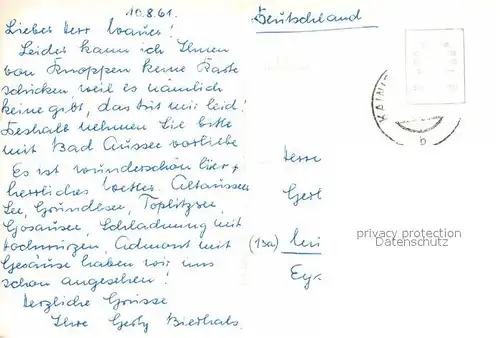 10.8.61.
Lieber Herr Wauer!
Leider kann ich Ihnen
von Knoppen keine Karte
schicken weil es nämlich
keine gibt, das tut mir leid!
Deshalb nehmen Sie bitte
mit Bad Aussee vorliebe
Es ist wunderschön hier +
herrliches Wetter. Altaussee
See, Grundlsee, Toplitzsee,
Gosausee, Schladming mit
Hochwurzen, Admont mit
Gesäuse haben wir uns
schon angesehen!
Herzliche Grüsse
Ihre Gerty Bierhals.
Deutschland
KAINI
b
Herrn
Gerl
(13a)
privacy protection
Datenschutz